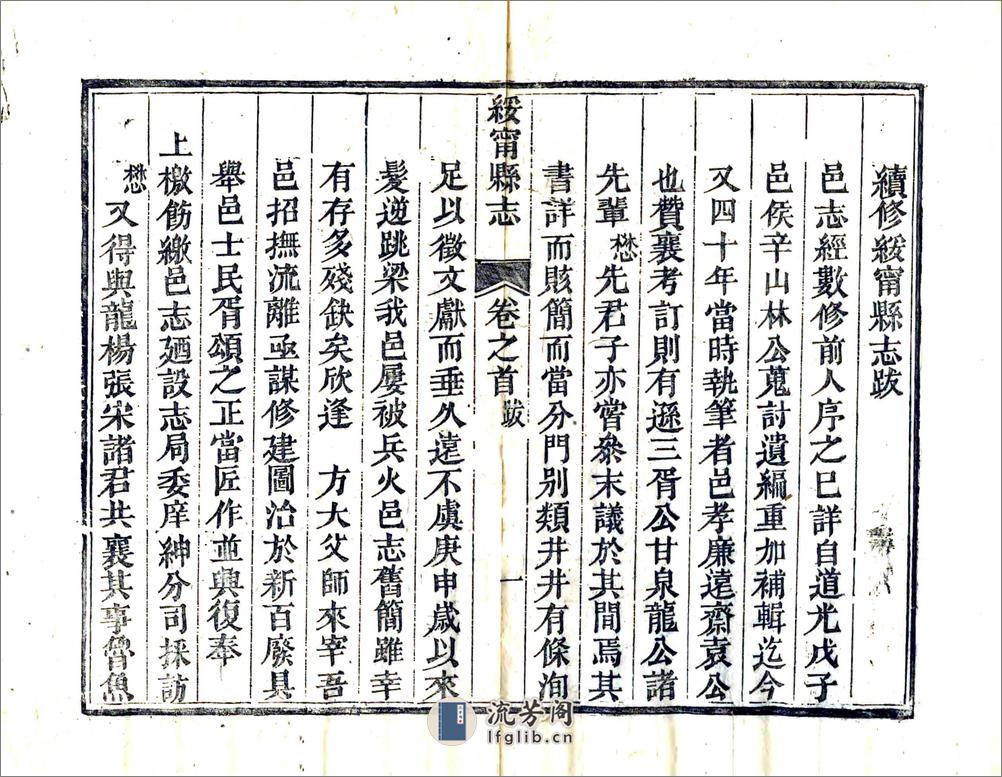 續修綏甯縣志跋
邑志經數修前人序之巳詳自道光戊子
邑侯辛山林公蒐討遺編重加補輯迄今
又四十年當時執筆者邑孝廉遠齋袁公
也贊襄考訂則有遜三胥公甘泉龍公諸
先輩懋先君子亦嘗參末議於其間焉其
書詳而賅簡而當分門别類井井有條洵
綏甯縣志 卷之首 跋 一
足以徵文獻而垂久遠不虞庚申歲以來
髮逆跳梁我邑屢被兵火邑志舊簡雖幸
有存多殘缺矣欣逢 方大父師來宰吾
邑招撫流離亟謀修建圖治於新百廢具
舉邑士民胥頌之正當匠作並興復奉
上檄飭繳邑志廼設志局委庠紳分司採訪
懋又得與龍楊張宋諸君共襄其事魯魚
流芳阁
lfglib.cn